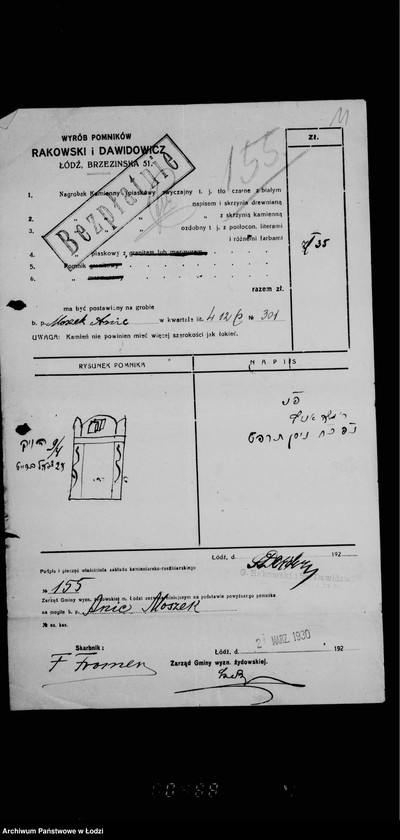 WYRÓB POMNIKÓW
RAKOWSKI i DAWIDOWICZ
ŁÓDŹ, BRZEZINSKA 51.
Bezpłatnie
155
11
ZŁ.
1. Nagrobek Kamienny (piaskowy) zwyczajny t. j. tło czarne z białym
napisem i skrzynia drewnianą
2. " " " " z skrzynią kamienną
3. " " " ozdobny t. j. z pozłocon. literami
i różnemi farbami
35
4. " piaskowy z granitem lub marmurem
5. Pomnik
6. "
razem zł.
ma być postawiony na grobie
b. p. Moszek Anic w kwartale lit. № 301
UWAGA: Kamień nie powinien mieć więcej szerokości jak łokieć.
RYSUNEK POMNIKA
NAPIS
פ״נ
ניסן תרפט
9/4
Łódź, d. 192
Podpis i pieczęć właściciela zakładu kamieniarsko-rzeźbiarskiego
№ 155
Zarząd Gminy wyzn. żydowskiej m. Łodzi na podstawie powyższego pomnika
na mogile b. p. Anic Moszek
№ ks. kas.
Łódź, d. 21 MARZ. 1930 192
Skarbnik:
Zarząd Gminy wyzn. żydowskiej.
F Fromer
Archiwum Państwowe w Łodzi